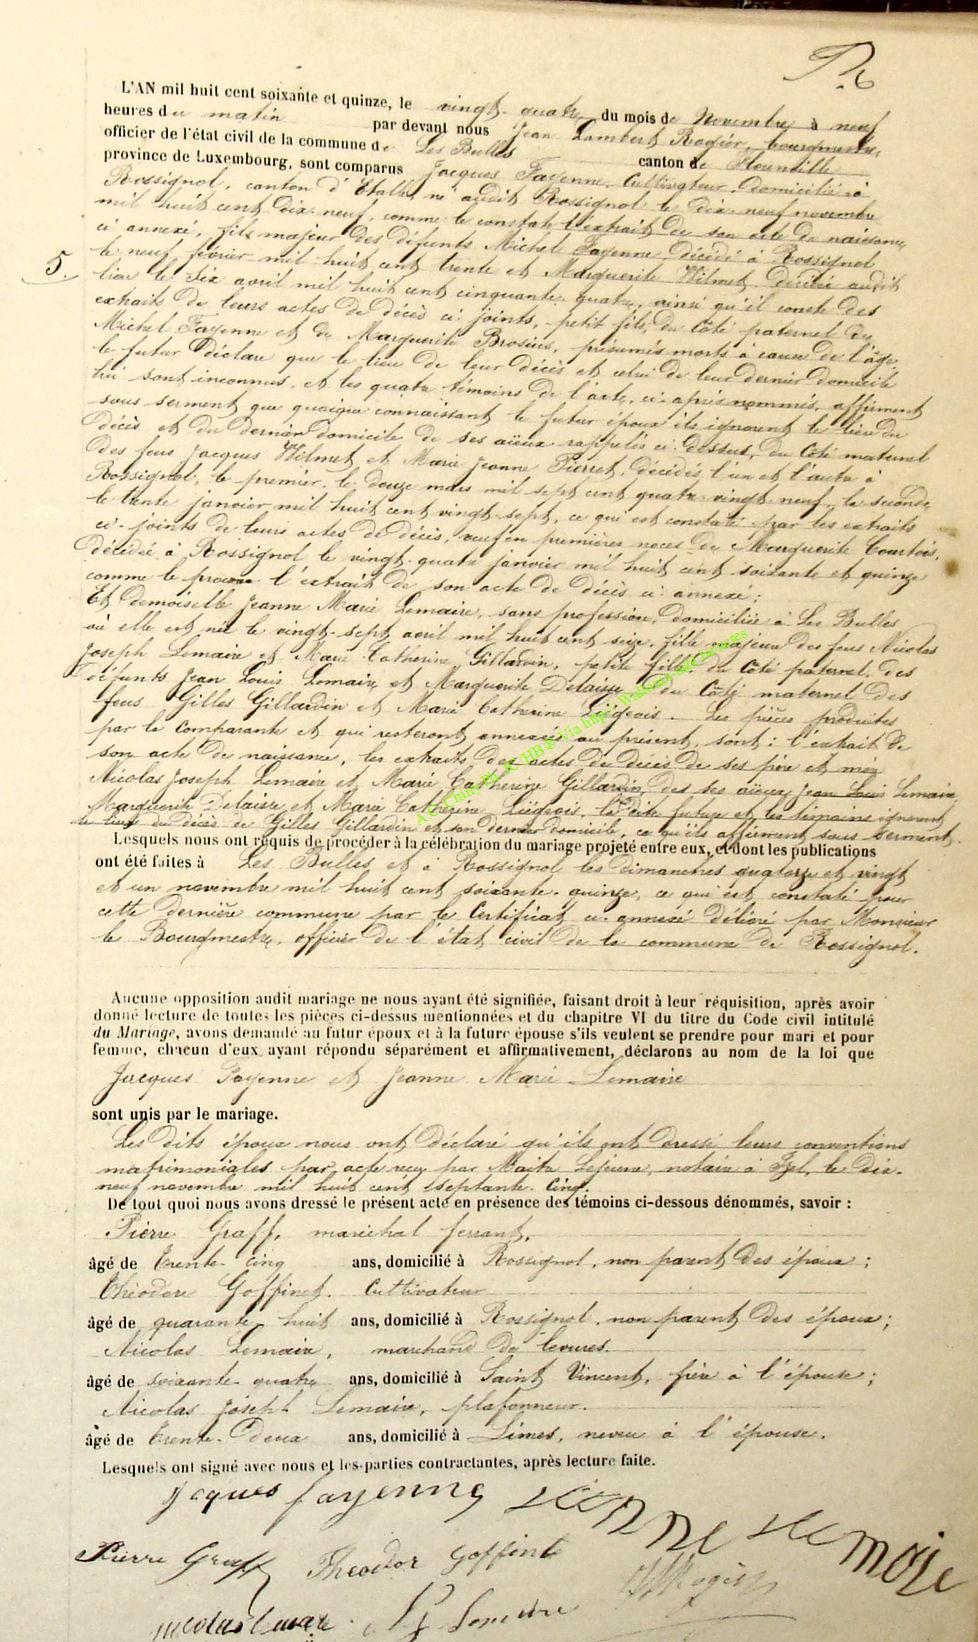 L'AN mil huit cent soixante et quinze, le vingt-quatre du mois de Novembre à neuf
heures du matin par devant nous Jean Lambert Rogier, bourgmestre,
officier de l'état civil de la commune de Les Bulles canton de Florenville
province de Luxembourg, sont comparus Jacques Fayenne, Cultivateur domicilié à
Rossignol, canton d'Etalle, né audit Rossignol le dix-neuf novembre
mil huit cent dix-neuf, comme le constate l'extrait de son acte de naissance
ci annexé, fils majeur des défunts Michel Fayenne décédé à Rossignol
5.
le neuf février mil huit cent trente et Marguerite Wilmet, décédée audit
lieu le six avril mil huit cent cinquante-quatre, ainsi qu'il conste des
extraits de leurs actes de décès ci-joints, petit fils, du côté paternel de
Michel Fayenne et de Marguerite Brosius, présumés morts à cause de l'âge,
le futur déclare que le lieu de leur décès et celui de leur dernier domicile
lui sont inconnus, et les quatre témoins de l'acte, ci-après nommés, affirment
sous serment que quoique connaissant le futur époux ils ignorent le lieu du
décès et du dernier domicile de ses aïeux rappelés ci-dessus, du côté maternel
des feus Jacques Wilmet et Marie Jeanne Pierret, décédés l'un et l'autre à
Rossignol, le premier, le douze mars mil sept cent quatre-vingt neuf, la seconde,
le trente janvier mil huit cent vingt-sept, ce qui est constaté par les extraits
ci-joints de leurs actes de décès, veuf en premières noces de Marguerite Courtois,
décédée à Rossignol le vingt-quatre janvier mil huit cent soixante et quinze
comme le prouve l'extrait de son acte de décès ci annexé;
Et demoiselle Jeanne Marie Lemaire, sans profession, domiciliée à Les Bulles
où elle est née le vingt-sept avril mil huit cent seize, fille majeure des feus Nicolas
Joseph Lemaire et Marie Catherine Gillardin, petite fille du côté paternel, des
défunts Jean Louis Lemaire et Marguerite Delaisse, du côté maternel des
feus Gilles Gillardin et Marie Catherine Liégeois. Les pièces produites
par la Comparante et qui resteront annexées au présent, sont: l'extrait de
son acte de naissance, les extraits des actes de décès de ses père et mère
Nicolas Joseph Lemaire et Marie Catherine Gillardin, des ses aïeux Jean Louis Lemaire,
Marguerite Delaisse et Marie Catherine Liégeois, la dite future et les témoins ignorent
le lieu du décès de Gilles Gillardin et son dernier domicile, ce qu'ils affirment sous serment.
Lesquels nous ont requis de procéder à la célébration du mariage projeté entre eux, et dont les publications
ont été faites à Les Bulles et à Rossignol les dimanches quatorze et vingt
et un novembre mil huit cent soixante-quinze, ce qui est constaté pour
cette dernière commune par le Certificat ci-annexé délivré par Monsieur
le Bourgmestre, officier de l'état civil de la commune de Rossignol.
Aucune opposition audit mariage ne nous ayant été signifiée, faisant droit à leur réquisition, après avoir
donné lecture de toutes les pièces ci-dessus mentionnées et du chapitre VI du titre du Code civil intitulé
du Mariage, avons demandé au futur époux et à la future épouse s'ils veulent se prendre pour mari et pour
femme, chacun d'eux ayant répondu séparément et affirmativement, déclarons au nom de la loi que
Jacques Fayenne et Jeanne Marie Lemaire
sont unis par le mariage.
Les dits époux nous ont déclaré qu'ils ont dressé leurs conventions
matrimoniales par acte reçu par Maître Lejeune, notaire à Izel, le dix-
neuf novembre mil huit cent septante-cinq.
De tout quoi nous avons dressé le présent acte en présence des témoins ci-dessous dénommés, savoir :
Pierre Graff, maréchal ferrant,
âgé de trente-cinq ans, domicilié à Rossignol, non parent des époux;
Théodore Goffinet, Cultivateur
âgé de quarante-huit ans, domicilié à Rossignol, non parent des époux;
Nicolas Lemaire, marchand de levures.
âgé de soixante-quatre ans, domicilié à Saint Vincent, frère à l'épouse;
Nicolas Joseph Lemaire, plafonneur.
âgé de trente-deux ans, domicilié à Limes, neveu à l'épouse.
Lesquels ont signé avec nous et les parties contractantes, après lecture faite.
jacques fayenne
Pierre Graff Theodor Goffinet